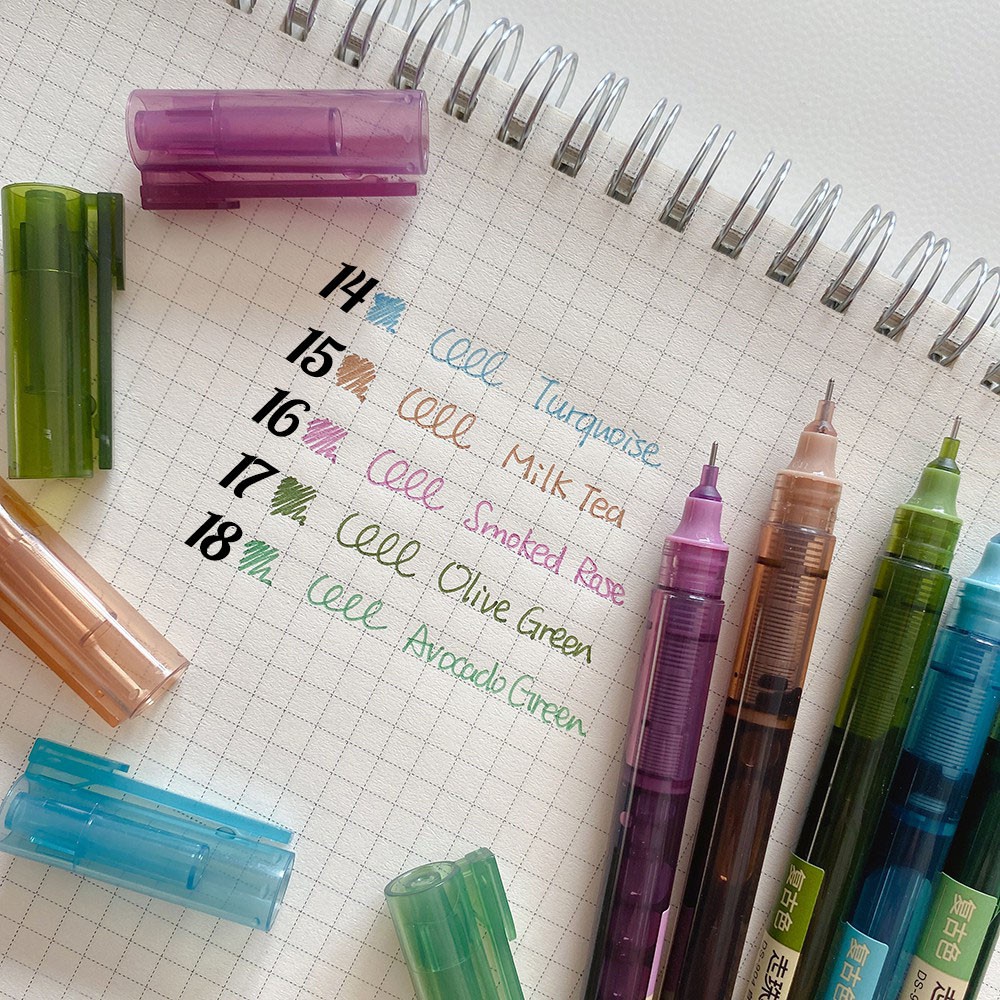 14 Turquoise
15 Milk Tea
16 Smoked Rose
17 Olive Green
18 Avocado Green
复古色
走珠
复古色
复古色
DS-